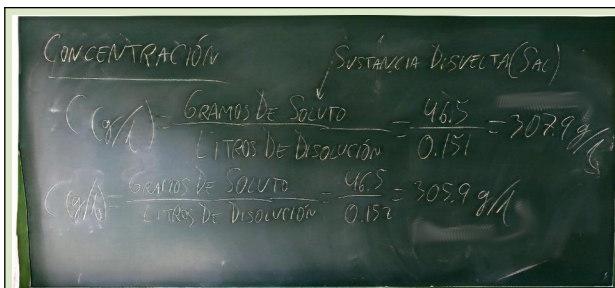 CONCENTRACIÓN
SUSTANCIA DISUELTA (SAL)
C (g/l) = GRAMOS DE SOLUTO / LITROS DE DISOLUCIÓN = 46.5 / 0.151 = 307.9 g/l
C (g/l) = GRAMOS DE SOLUTO / LITROS DE DISOLUCIÓN = 46.5 / 0.152 = 305.9 g/l